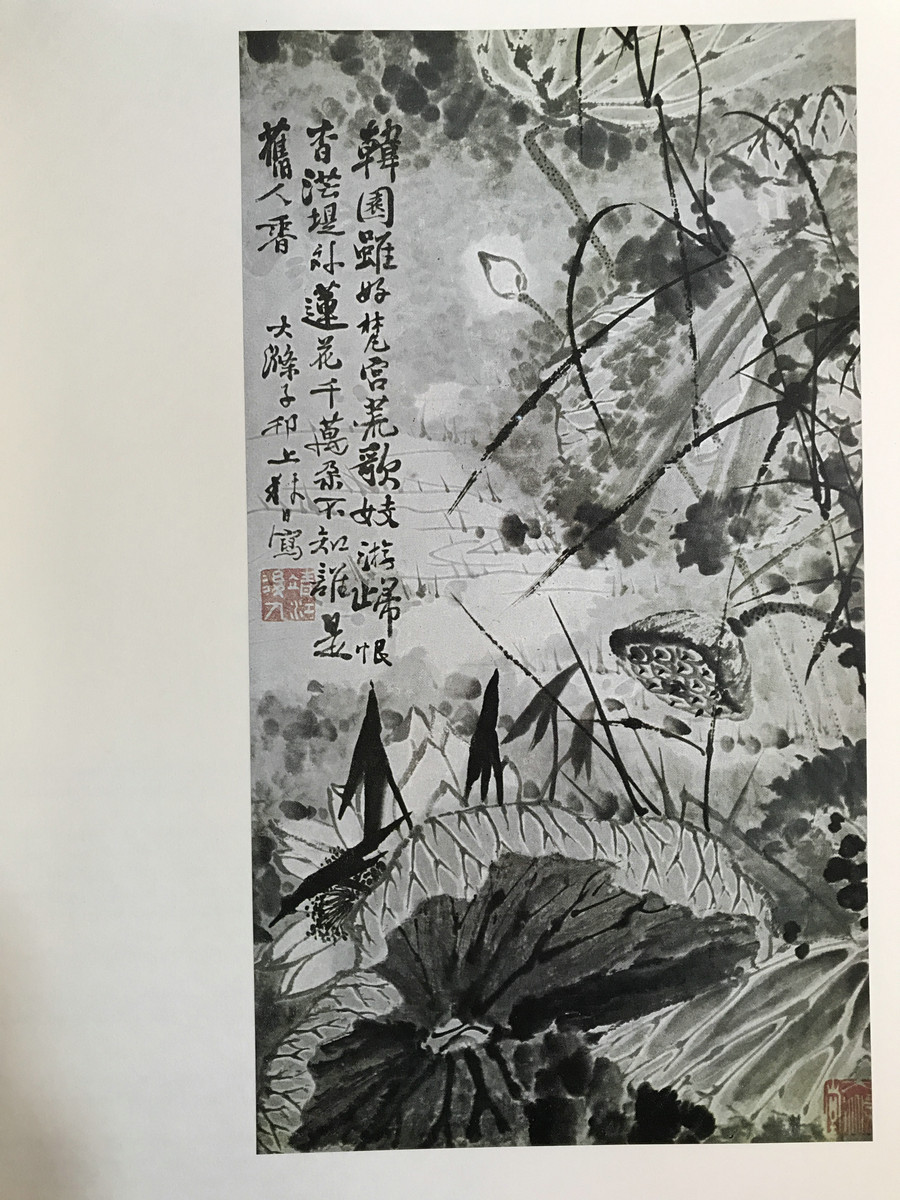 韓園雖好梵宮荒歌妓游歸恨
杳茫堤外蓮花千萬朵不知誰是
舊人香
大滌子邗上秋日寫